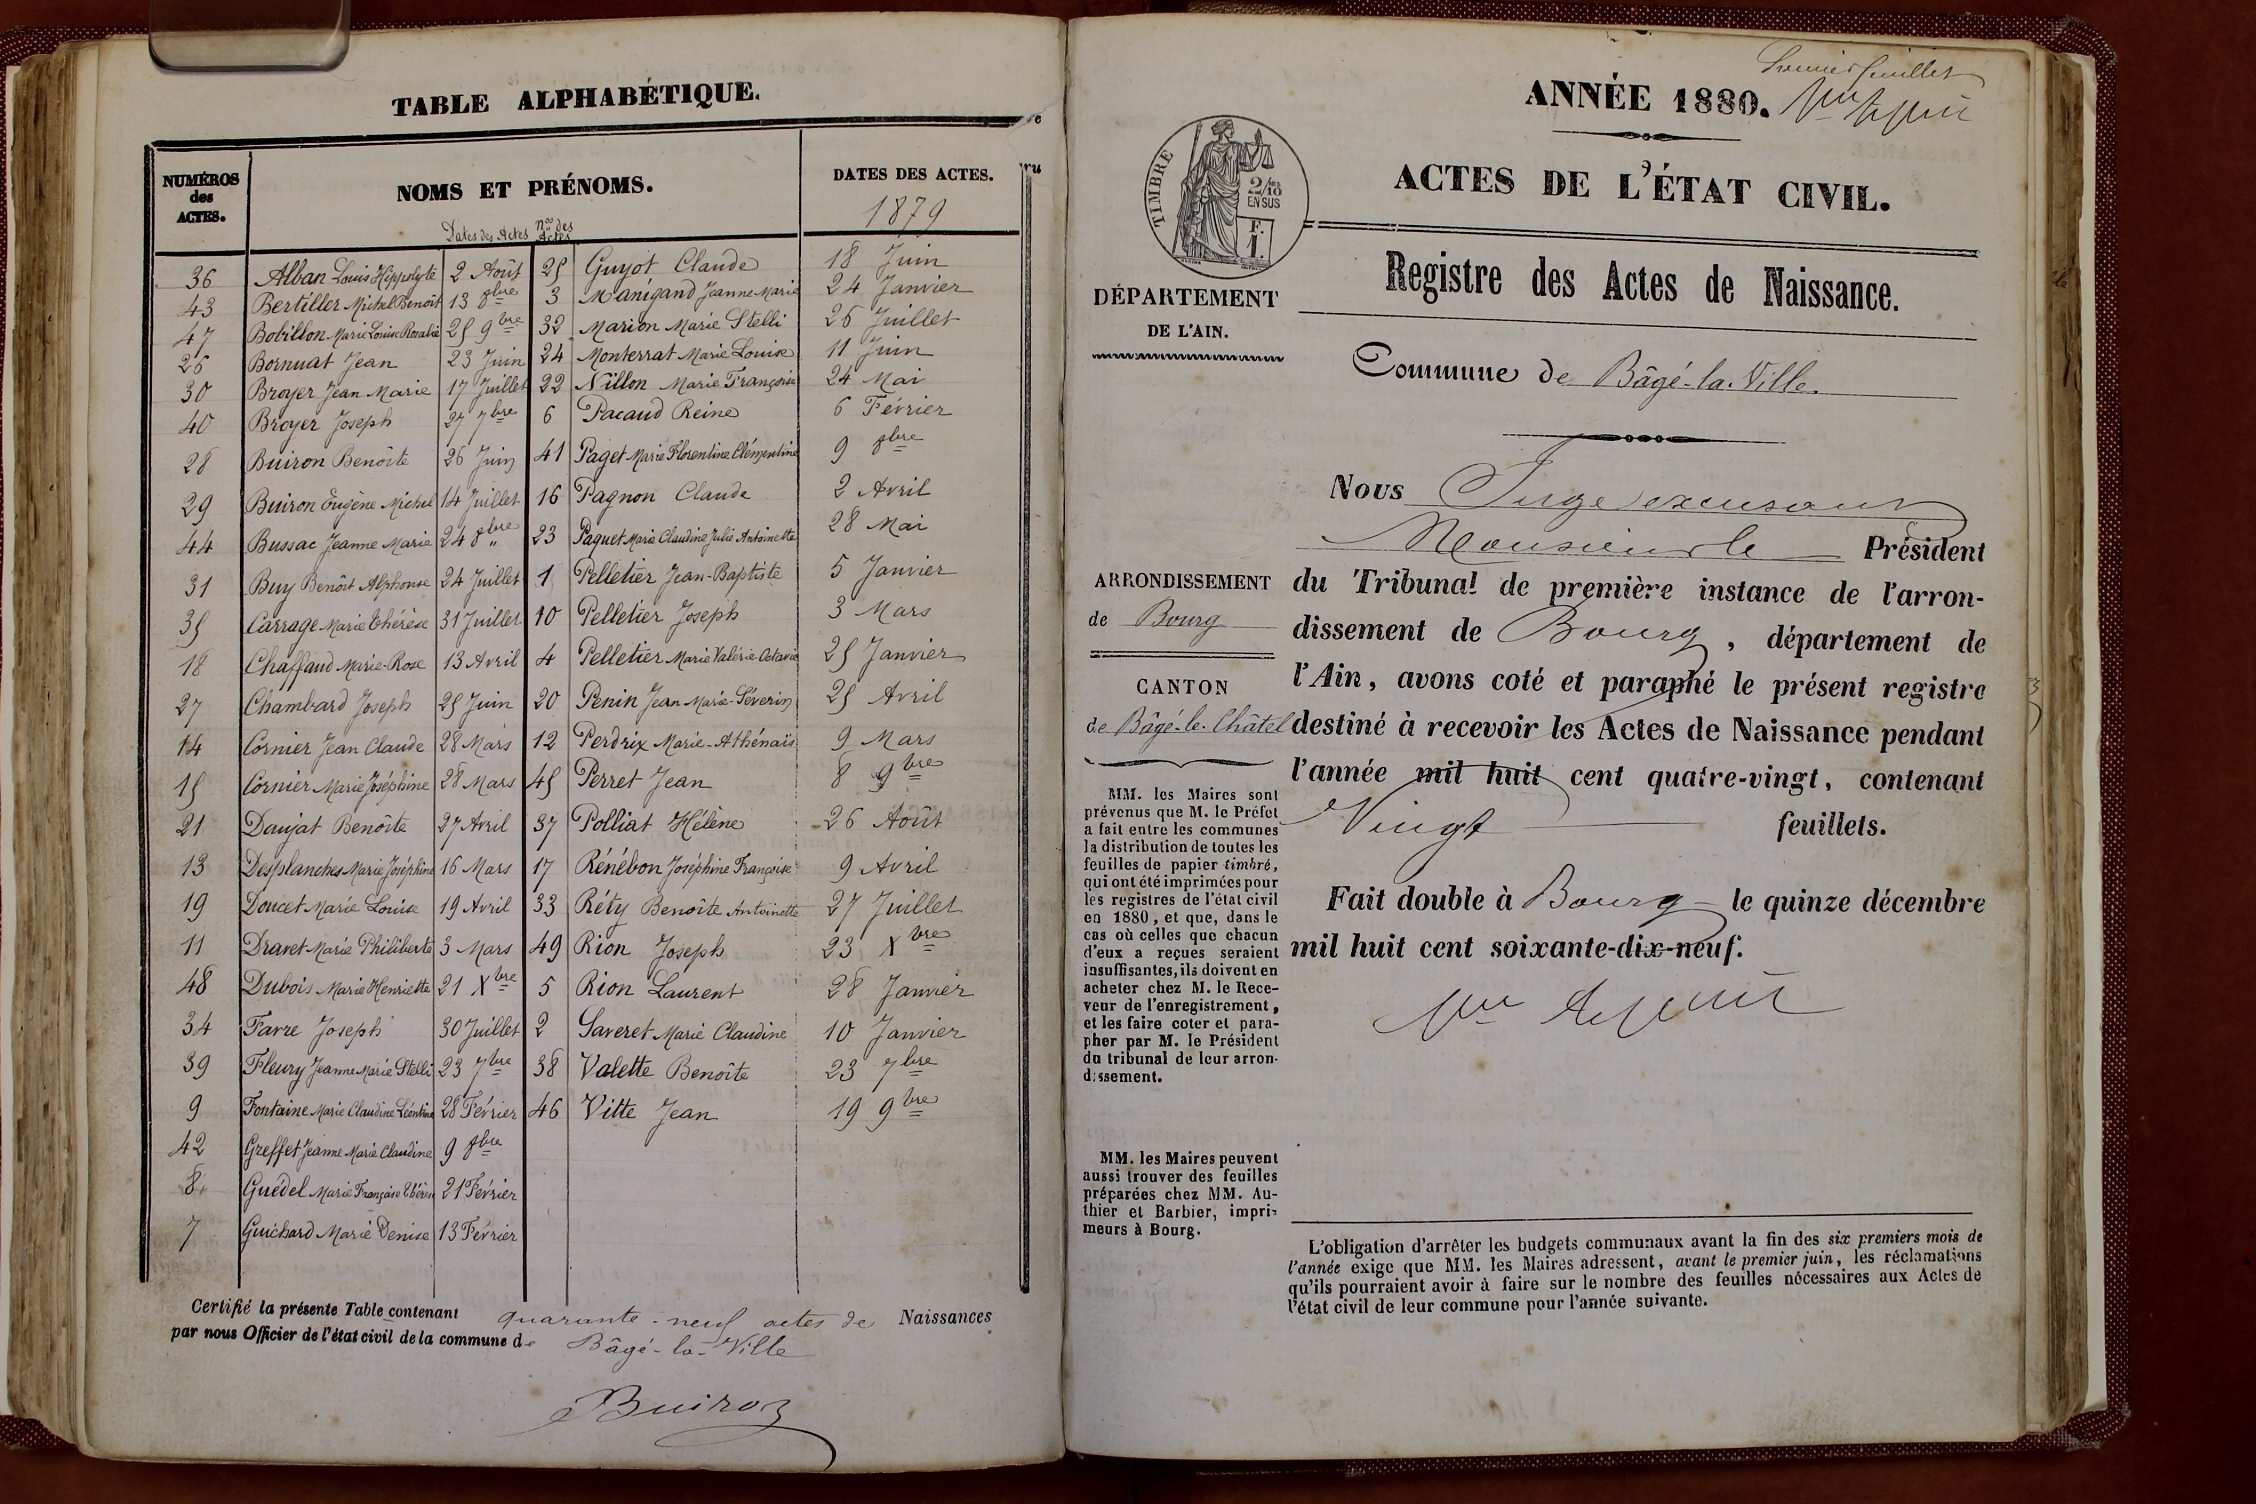 TABLE ALPHABÉTIQUE.
NUMÉROS des ACTES.
NOMS ET PRÉNOMS.
DATES DES ACTES.
Dates des Actes Nos des Actes
1879
36 Alban Louis Hippolyte 2 Août 25 Guyot Claude 18 Juin
43 Bertiller Michel Benoit 13 8bre 3 Manigand Jeanne Marie 24 Janvier
47 Bobillon Marie Louise Rosalie 25 9bre 32 Marion Marie Stelli 26 Juillet
26 Bornuat Jean 23 Juin 24 Monterrat Marie Louise 11 Juin
30 Broyer Jean Marie 17 Juillet 22 Nillon Marie Françoise 24 Mai
40 Broyer Joseph 27 7bre 6 Pacaud Reine 6 Février
28 Buiron Benoîte 26 Juin 41 Paget Marie Florentine Clémentine 9 8bre
29 Buiron Eugène Michel 14 Juillet 16 Pagnon Claude 2 Avril
44 Bussac Jeanne Marie 24 8bre 23 Paquet Marie Claudine Julie Antoinette 28 Mai
31 Buy Benoît Alphonse 24 Juillet 1 Pelletier Jean-Baptiste 5 Janvier
35 Carrage Marie Thérèse 31 Juillet 10 Pelletier Joseph 3 Mars
18 Chaffaud Marie-Rose 13 Avril 4 Pelletier Marie Valérie Octavie 25 Janvier
27 Chambard Joseph 25 Juin 20 Penin Jean Marie-Séverin 25 Avril
14 Cornier Jean Claude 28 Mars 12 Perdrix Marie-Athénaïs 9 Mars
15 Cornier Marie Joséphine 28 Mars 45 Perret Jean 8 9bre
21 Daujat Benoîte 27 Avril 37 Polliat Hélène 26 Août
13 Desplanches Marie Joséphine 16 Mars 17 Rénébon Joséphine Françoise 9 Avril
19 Doucet Marie Louise 19 Avril 33 Réty Benoîte Antoinette 27 Juillet
11 Dravet Marie Philiberte 3 Mars 49 Rion Joseph 23 Xbre
48 Dubois Marie Henriette 21 Xbre 5 Rion Laurent 28 Janvier
34 Favre Joseph 30 Juillet 2 Saveret Marie Claudine 10 Janvier
39 Fleury Jeanne Marie Stelli 23 7bre 38 Valette Benoîte 23 7bre
9 Fontaine Marie Claudine Léontine 28 Février 46 Vitte Jean 19 9bre
42 Greffet Jeanne Marie Claudine 9 8bre
8 Guédel Marie Françoise Thérèse 21 Février
7 Guichard Marie Denise 13 Février
Certifié la présente Table contenant quarante-neuf actes de Naissances
par nous Officier de l'état civil de la commune de Bâgé-la-Ville
Buiron
Premier feuillet
ANNÉE 1880.
ACTES DE L'ÉTAT CIVIL.
TIMBRE
2/10
EN SUS
F.
1.
Registre des Actes de Naissance.
DÉPARTEMENT
DE L'AIN.
Commune de Bâgé-la-Ville.
Nous Juge excusant
Monsieur le Président
du Tribunal de première instance de l'arron-
dissement de Bourg, département de
l'Ain, avons coté et paraphé le présent registre
destiné à recevoir les Actes de Naissance pendant
l'année mil huit cent quatre-vingt, contenant
Vingt feuillets.
Fait double à Bourg le quinze décembre
mil huit cent soixante-dix-neuf.
ARRONDISSEMENT
de Bourg
CANTON
de Bâgé-le-Châtel
MM. les Maires sont
prévenus que M. le Préfet
a fait entre les communes
la distribution de toutes les
feuilles de papier timbré,
qui ont été imprimées pour
les registres de l'état civil
en 1880, et que, dans le
cas où celles que chacun
d'eux a reçues seraient
insuffisantes, ils doivent en
acheter chez M. le Rece-
veur de l'enregistrement,
et les faire coter et para-
pher par M. le Président
du tribunal de leur arron-
dissement.
MM. les Maires peuvent
aussi trouver des feuilles
préparées chez MM. Au-
thier et Barbier, impri-
meurs à Bourg.
L'obligation d'arrêter les budgets communaux avant la fin des six premiers mois de
l'année exige que MM. les Maires adressent, avant le premier juin, les réclamations
qu'ils pourraient avoir à faire sur le nombre des feuilles nécessaires aux Actes de
l'état civil de leur commune pour l'année suivante.